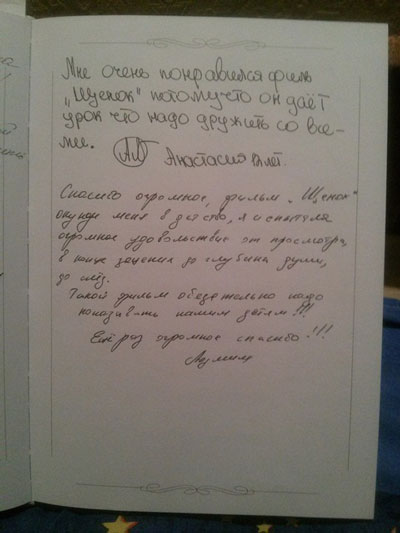 Мне очень понравился филь
„Щенок" потому что он даёт
урок что надо дружить со все-
ми. Анастасия лет.
Спасибо огромное, фильм „Щенок"
меня в детство, я испытала
огромное удовольствие от просмотра,
в конце до глубины души,
до слёз.
Такой фильм надо
показывать нашим детям!!!
Ещё раз огромное спасибо!!!